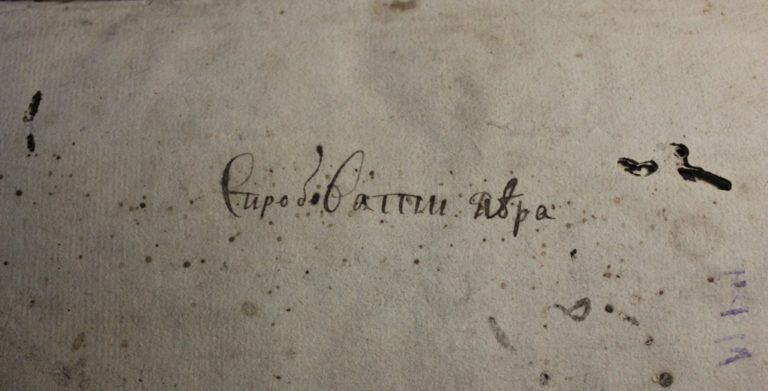 Спробовати пѣра